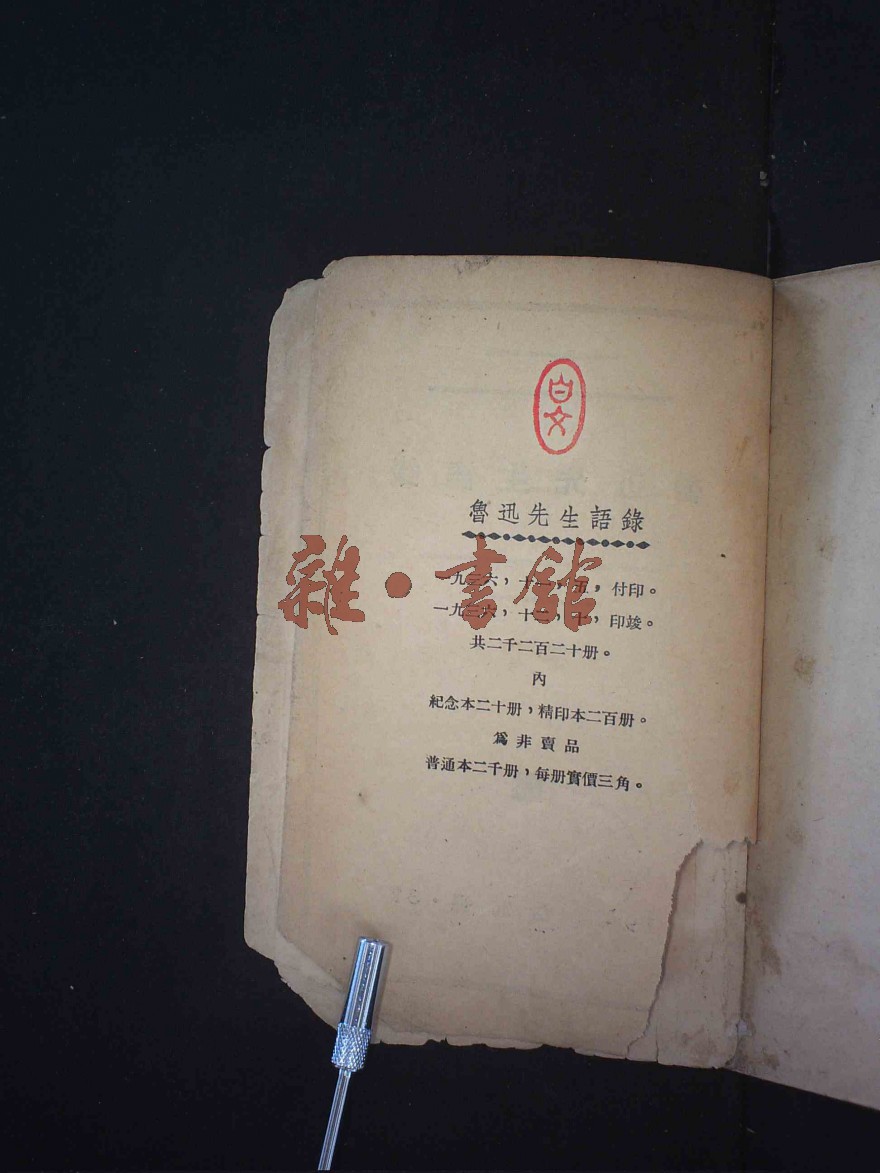 白文
魯迅先生語錄
一九三六，十一，五，付印。
一九三六，十二，十，印竣。
共二千二百二十册。
內
紀念本二十册，精印本二百册。
爲非賣品
普通本二千册，每册實價三角。
雜·書館